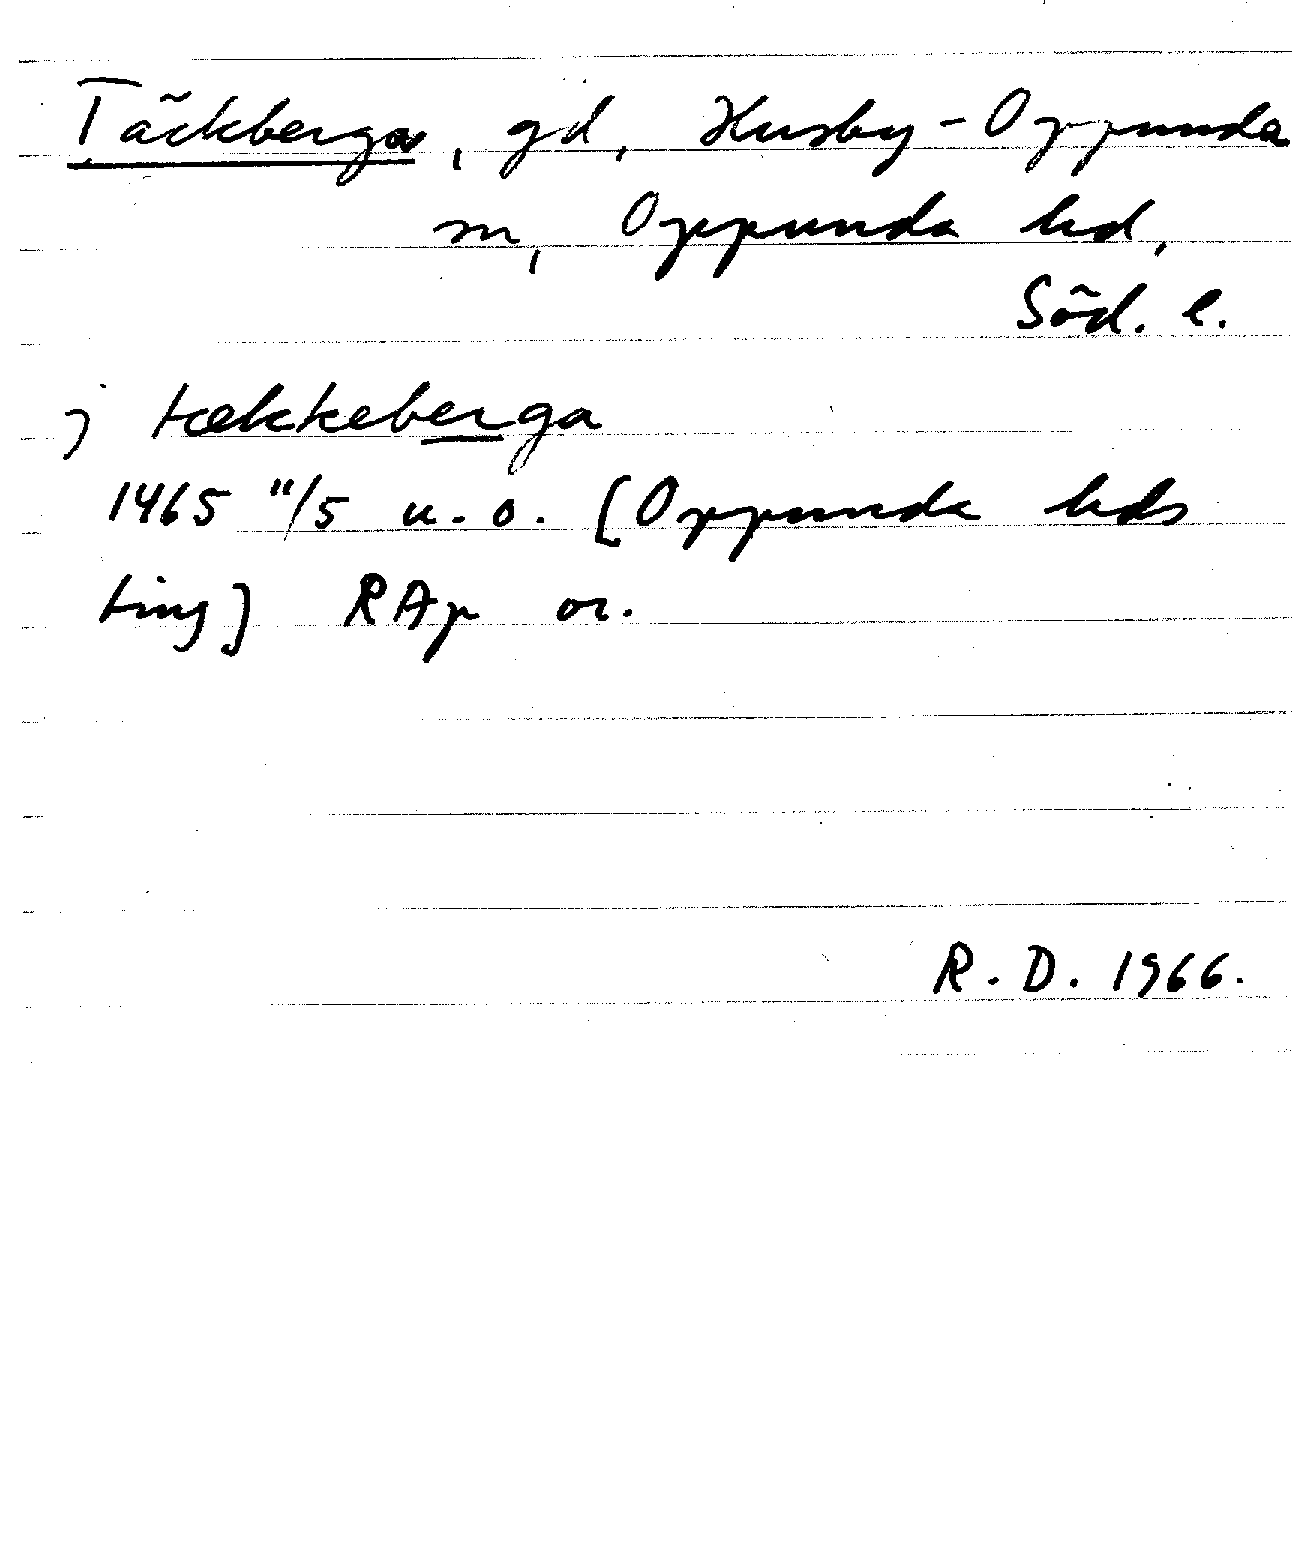 Täckberga, gd, Husby-Oppunda
sn, Oppunda hd,
Söd. l.
j tækkeberga
1465 11/5 u. o. [Oppunda hds
ting] RAp or.
R. D. 1966.